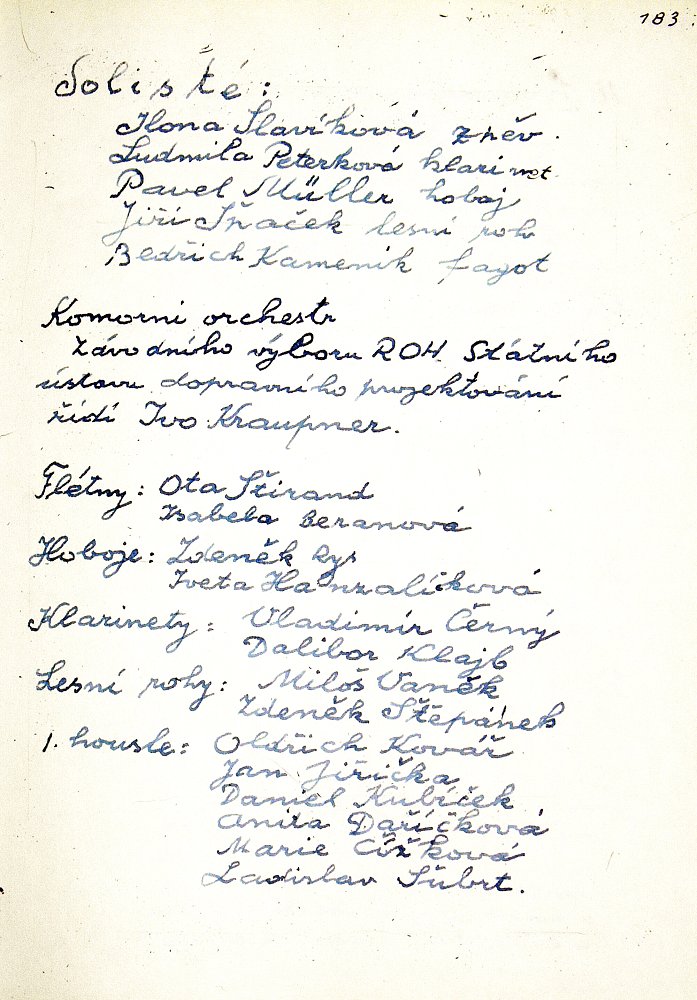 183
Solisté:
Ilona Slavíková zpěv.
Ludmila Peterková klarinet
Pavel Müller hoboj
Jiří Špaček lesní roh
Bedřich Kameník fagot
Komorní orchestr
Závodního výboru ROH Státního
ústavu dopravního projektování
řídí Ivo Kraupner.
Flétny: Ota Štirand
Isabela Beranová
Hoboje: Zdeněk Rys
Iveta Hanzalíčková
Klarinety: Vladimír Černý
Dalibor Klajb
Lesní rohy: Miloš Vaněk
Zdeněk Štěpánek
1. housle: Oldřich Kovář
Jan Jiřička
Daniel Kubíček
Anita Daříčková
Marie Čížková
Ladislav Šubrt.